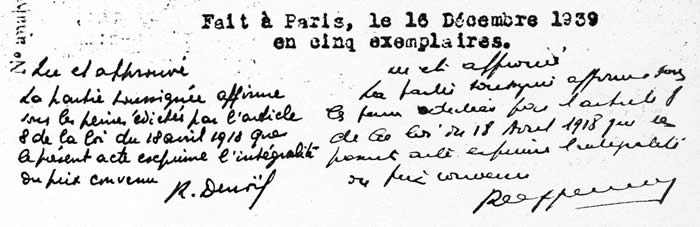 Fait à Paris, le 16 Décembre 1939
en cinq exemplaires.
Lu et approuvé
La partie soussignée affirme
sous les peines édictées par l'article
8 de la loi du 18 avril 1918 que
le présent acte exprime l'intégralité
du prix convenu
R. Denoël
Lu et approuvé
La partie soussignée affirme sous
les peines édictées par l'article 8
de la loi du 18 Avril 1918 que le
présent acte exprime l'intégralité
du prix convenu